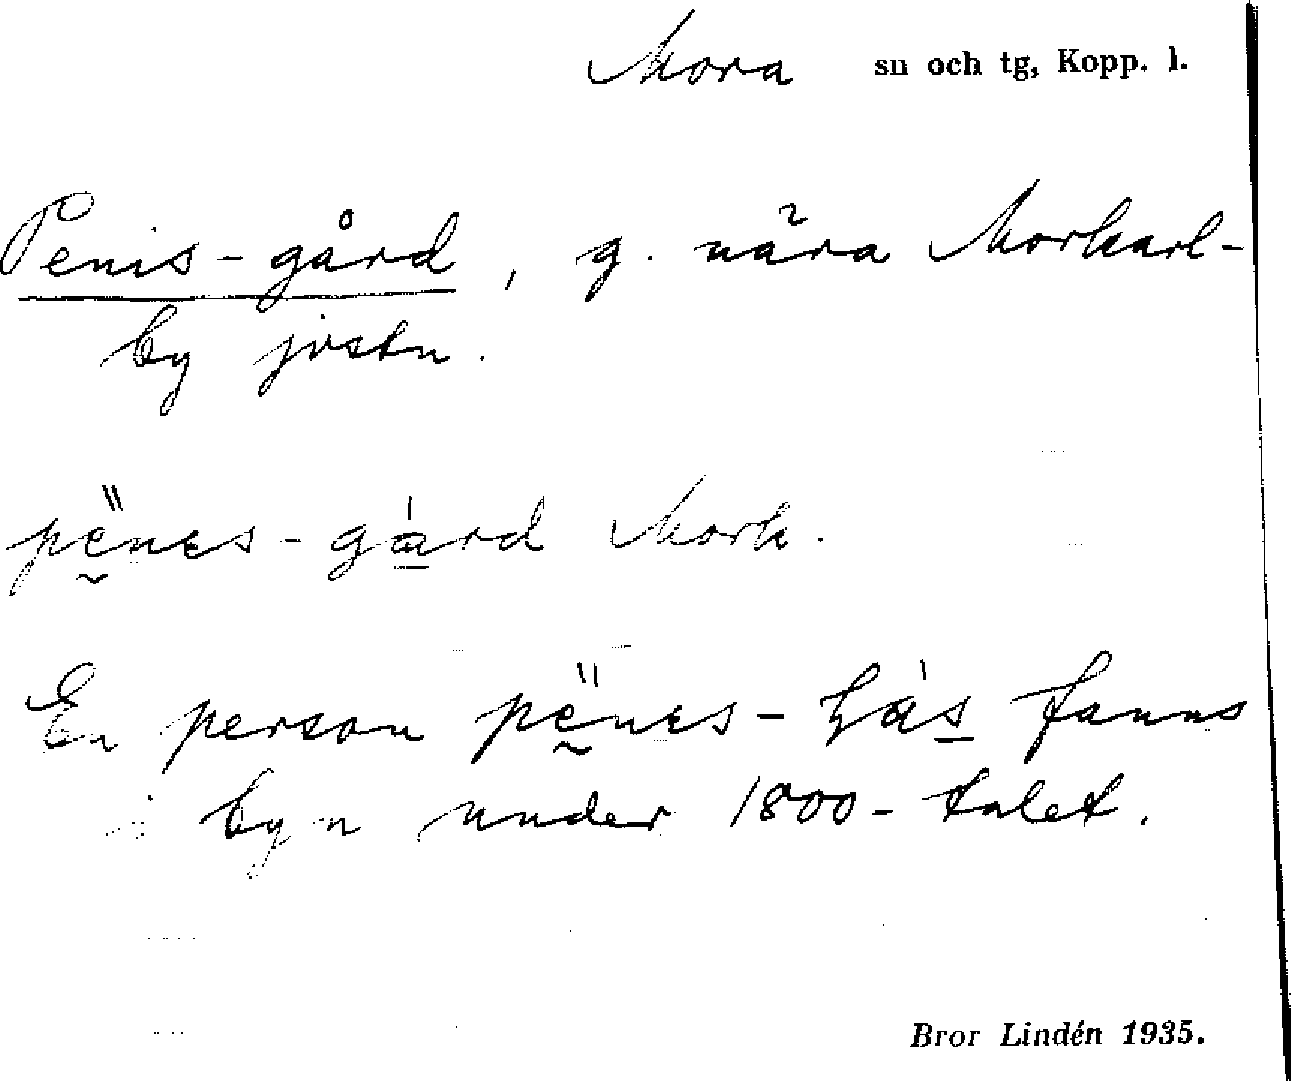 Mora sn och tg, Kopp. l.
Penis-gård, g. nära Morkarl-
by jvstn.
pënɛs-gárd Mork.
En person pënɛs-Lás fanns
i byn under 1800-talet.
Bror Lindén 1935.